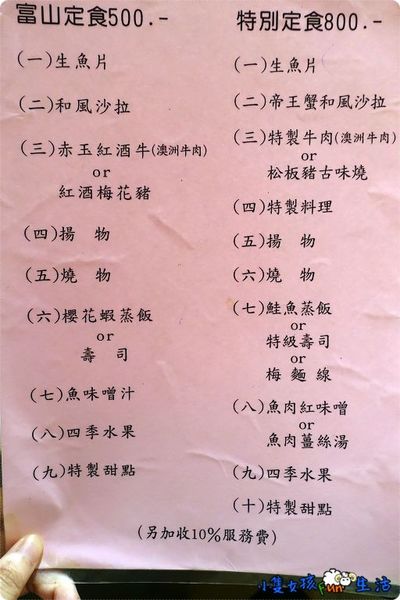 富山定食500.-
(一)生魚片
(二)和風沙拉
(三)赤玉紅酒牛(澳洲牛肉)
or
紅酒梅花豬
(四)揚 物
(五)燒 物
(六)櫻花蝦蒸飯
or
壽 司
(七)魚味噌汁
(八)四季水果
(九)特製甜點
特別定食800.-
(一)生魚片
(二)帝王蟹和風沙拉
(三)特製牛肉(澳洲牛肉)
or
松板豬古味燒
(四)特製料理
(五)揚 物
(六)燒 物
(七)鮭魚蒸飯
or
特級壽司
or
梅 麵 線
(八)魚肉紅味噌
or
魚肉薑絲湯
(九)四季水果
(十)特製甜點
(另加收10%服務費)
小隻女孩fun生活